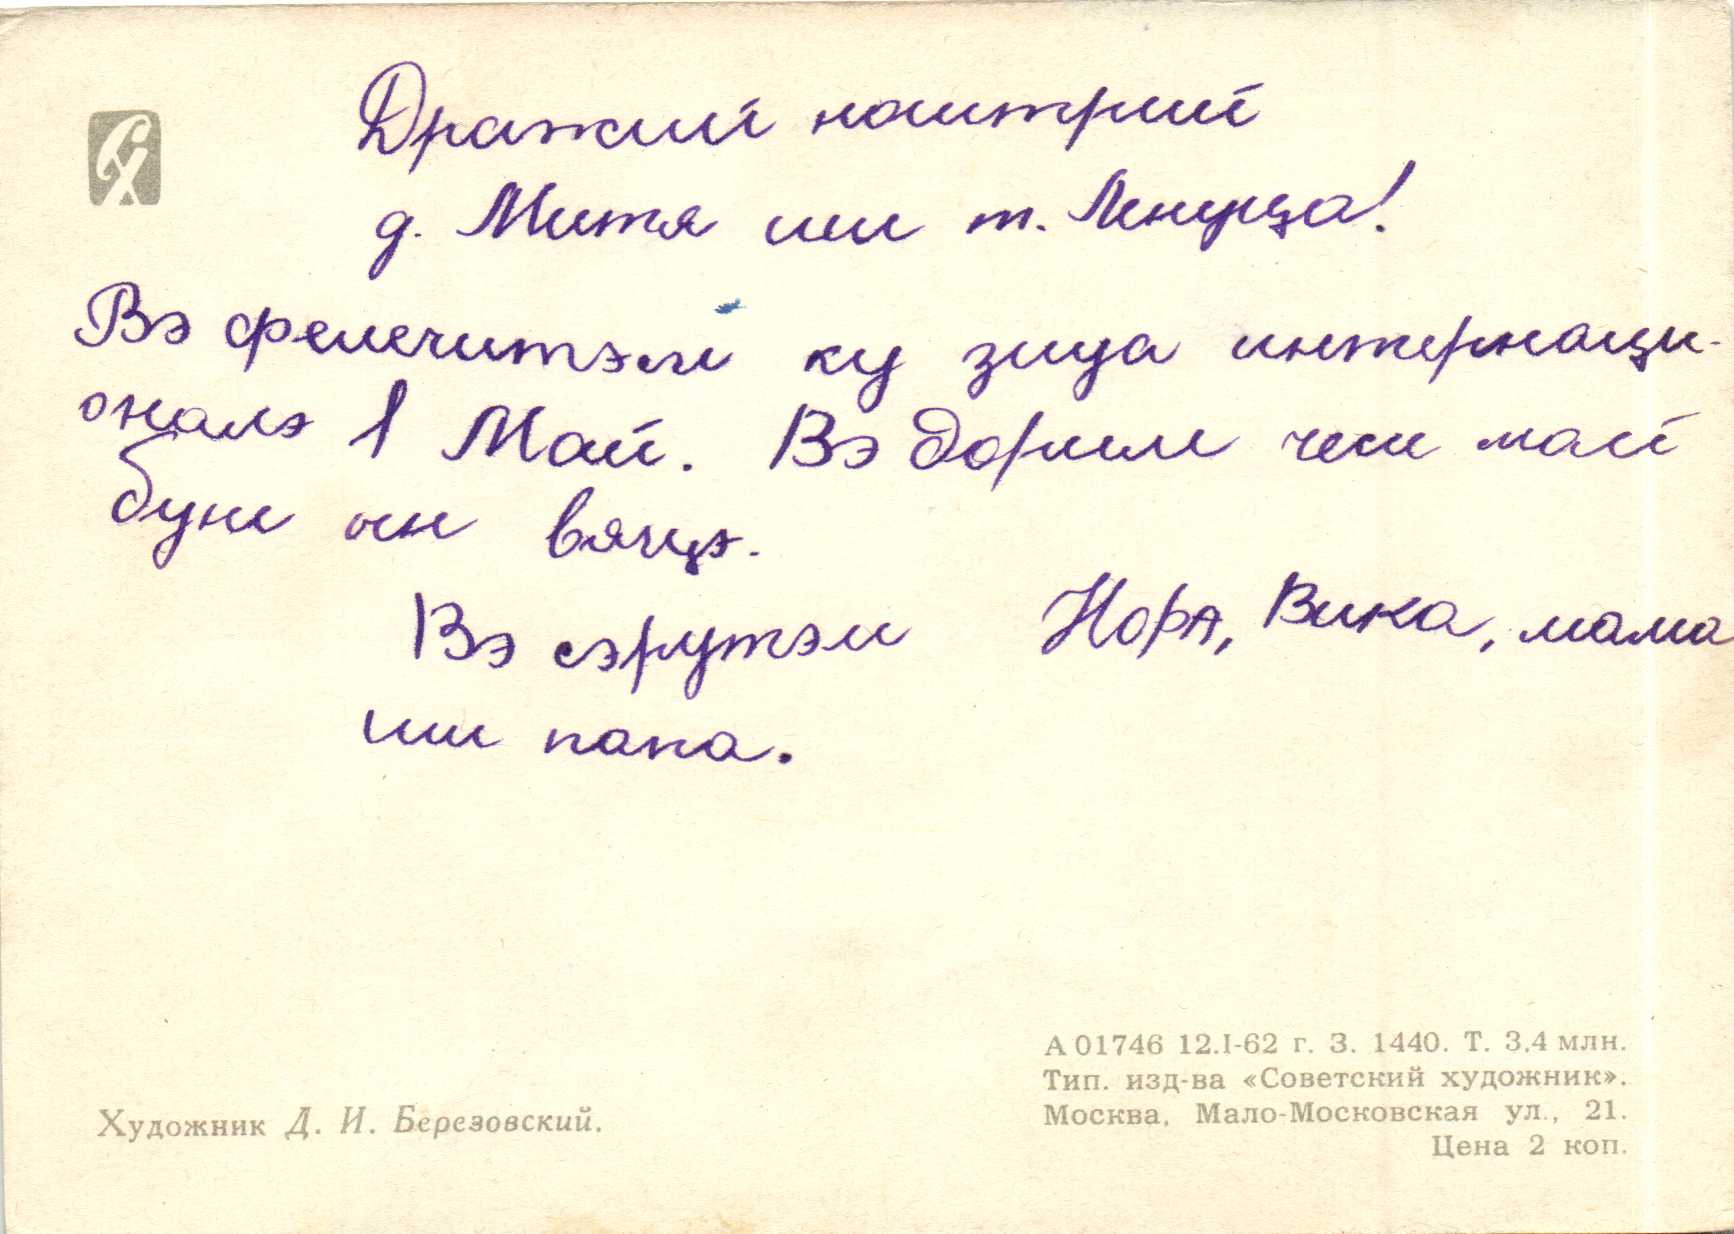 Дражий ноштрий
д. Митя ши т. Ленуца!
Вэ феличитэм ку зиуа интернаци-
оналэ 1 Май. Вэ дорим чел май
буне ын вяцэ.
Вэ сэрутэм Нора, Вика, мама
ши папа.
Художник Д. И. Березовский.
А 01746 12.I-62 г. З. 1440. Т. 3,4 млн.
Тип. изд-ва «Советский художник».
Москва, Мало-Московская ул., 21.
Цена 2 коп.